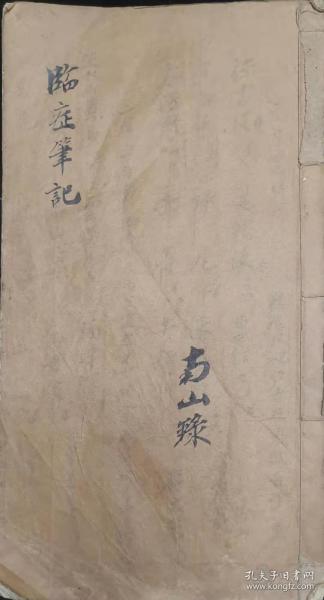 臨症筆記
南山錄
孔夫子旧书网
www.kongfz.com